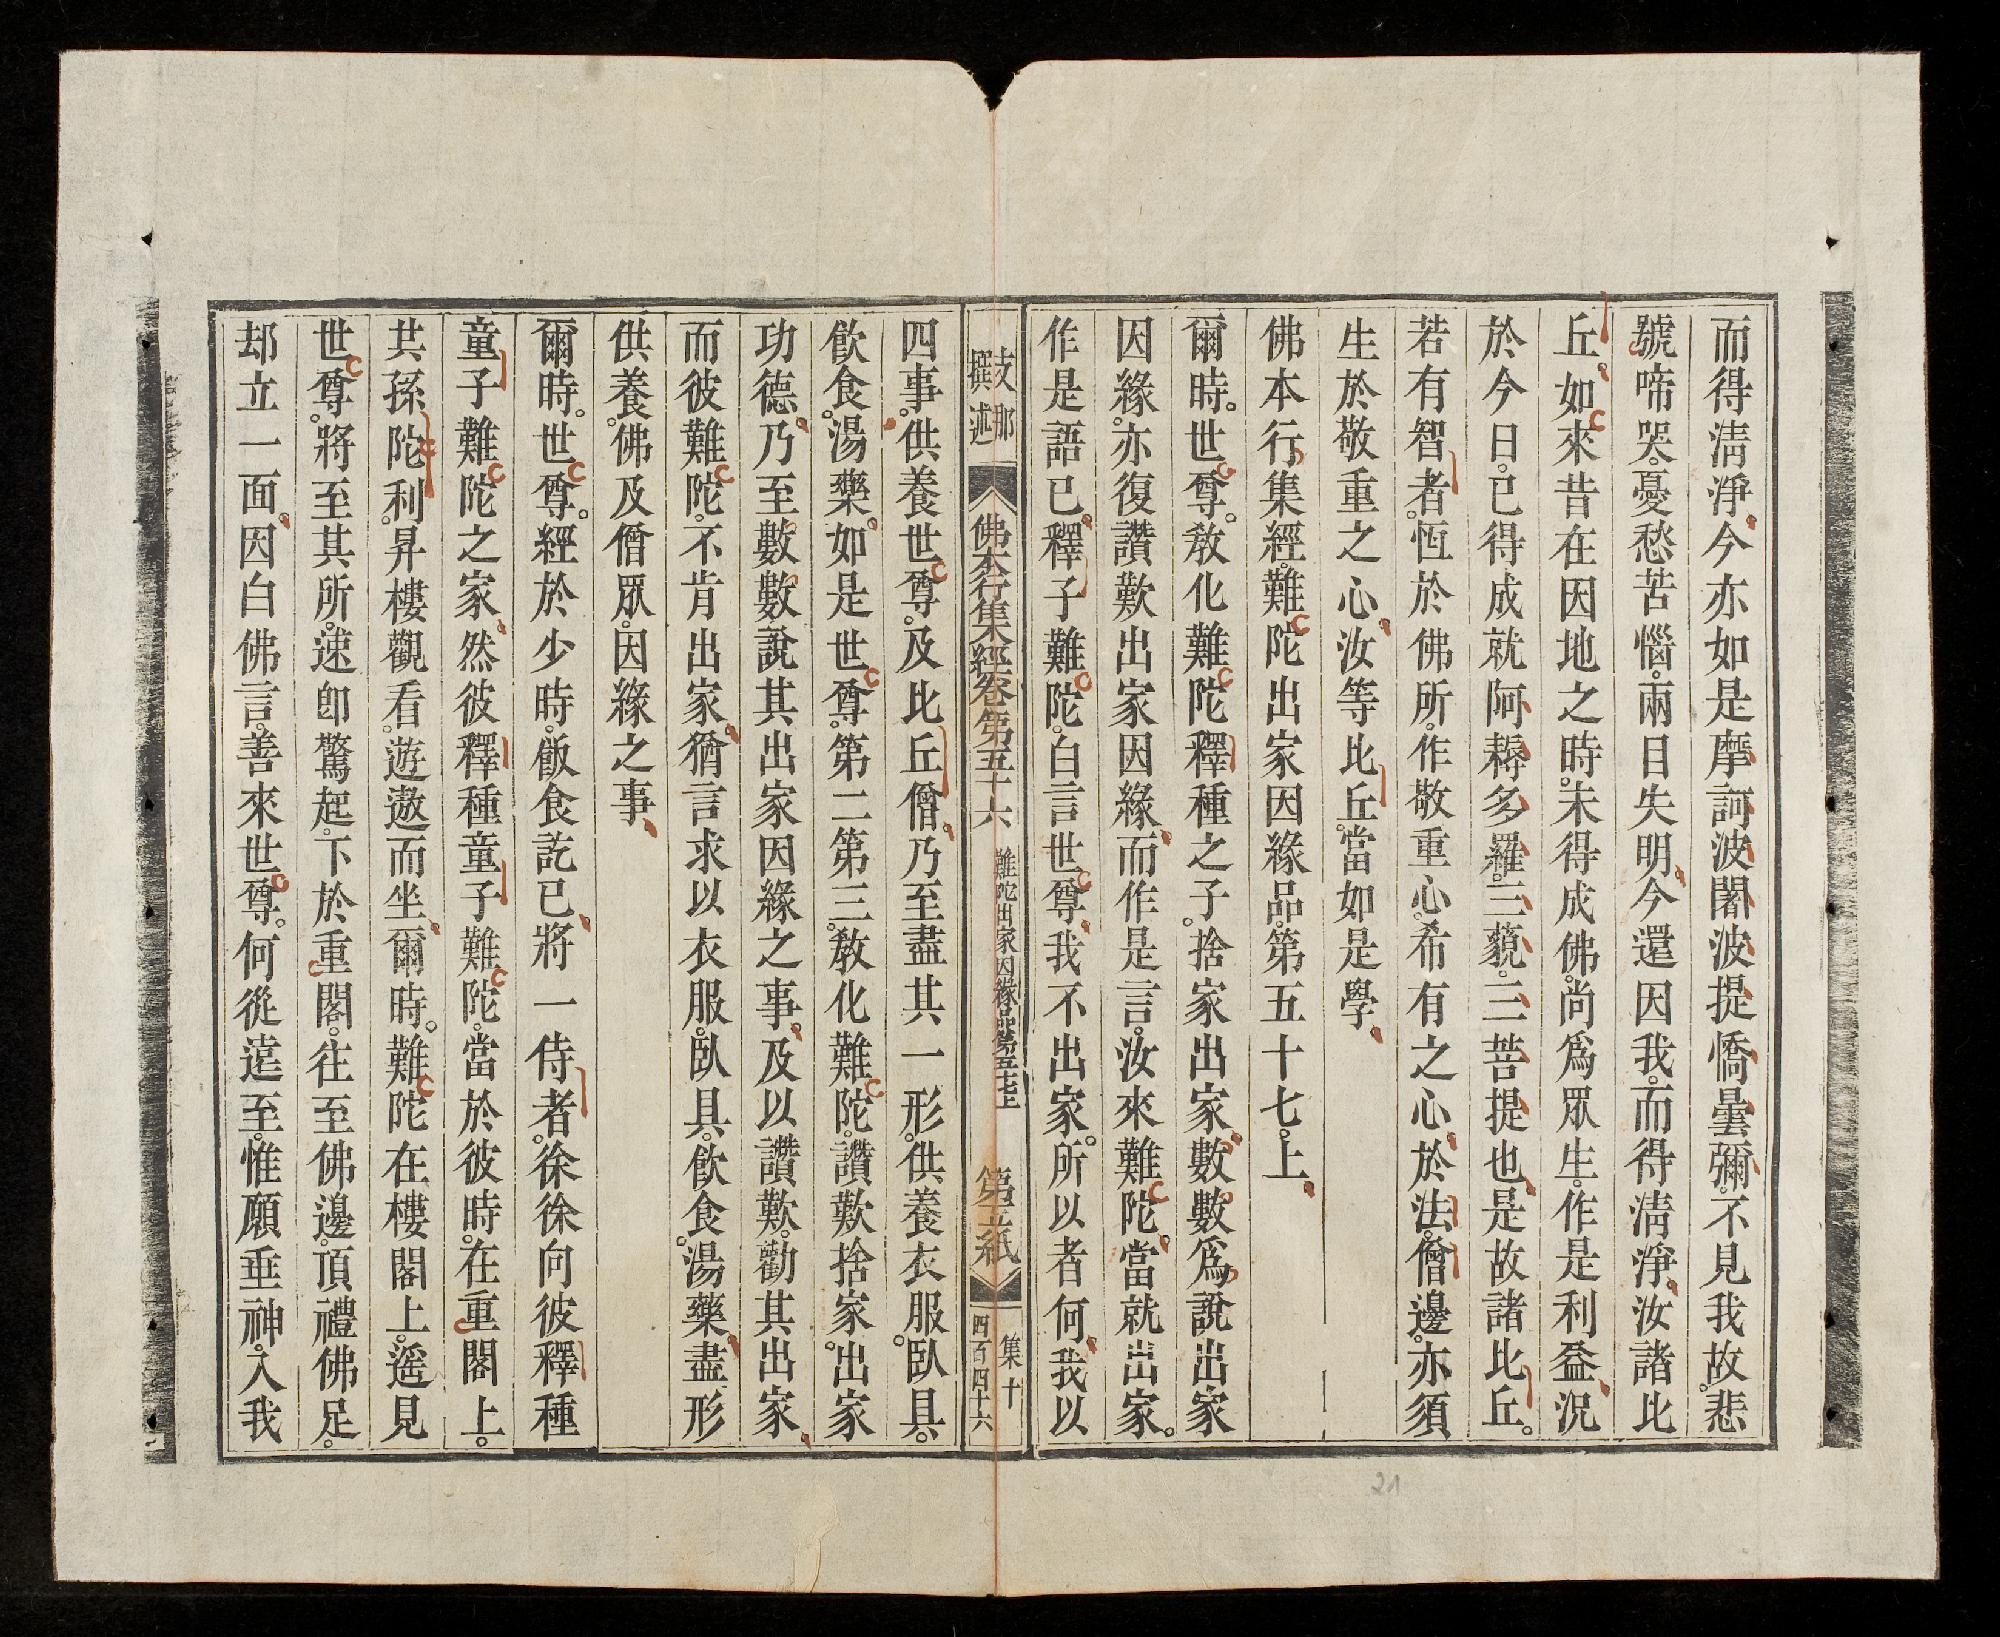 而得清淨今亦如是摩訶波闍波提憍曇彌。不見我故。悲
號啼哭。憂愁苦惱。兩目失明今還因我。而得清淨。汝諸比
丘。如來昔在因地之時。未得成佛。尚爲眾生。作是利益況
於今日。已得成就阿耨多羅。三藐。三菩提也是故諸比丘。
若有智者。恆於佛所。作敬重心。希有之心於法。僧邊。亦須
生於敬重之心汝等比丘。當如是學
佛本行集經。難陀出家因緣品。第五十七。上
爾時。世尊。教化難陀釋種之子。捨家出家。數數爲說出家
因緣。亦復讚歎出家因緣而作是言。汝來難陀。當就出家。
作是語已。釋子難陀。白言世尊我不出家。所以者何我以
支那
撰述
佛本行集經卷第五十六
難陀出家因緣品第五十七上
集十
四百四十六
四事。供養世尊。及比丘僧。乃至盡其一形。供養衣服。臥具。
飲食。湯藥。如是世尊。第二第三。教化難陀。讚歎捨家。出家
功德。乃至數數說其出家因緣之事。及以讚歎。勸其出家。
而彼難陀。不肯出家。猶言求以衣服。臥具。飲食。湯藥。盡形
供養。佛及僧眾。因緣之事
爾時。世尊。經於少時。飯食訖已。將一侍者。徐徐向彼釋種
童子難陀之家然彼釋種童子難陀。當於彼時。在重閣上。
共孫陀利。昇樓觀看。遊遨而坐。爾時。難陀在樓閣上。遙見
世尊。將至其所。速卽驚起。下於重閣。往至佛邊。頂禮佛足。
却立一面。因白佛言。善來世尊。何從遠至。惟願垂神。入我